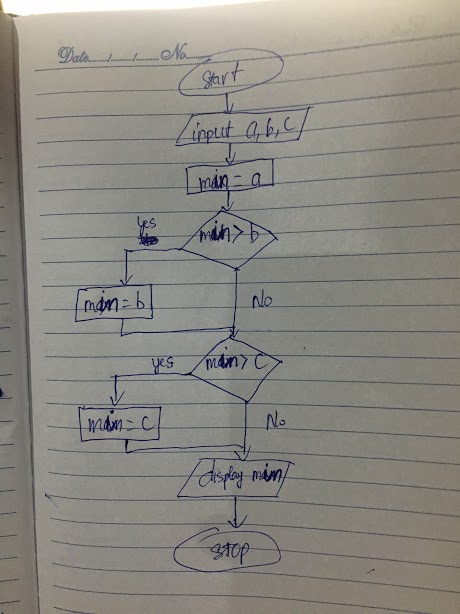 Date / / No
Start
input a, b, c
min = a
min > b
yes
min = b
No
min > c
yes
min = c
No
display min
STOP